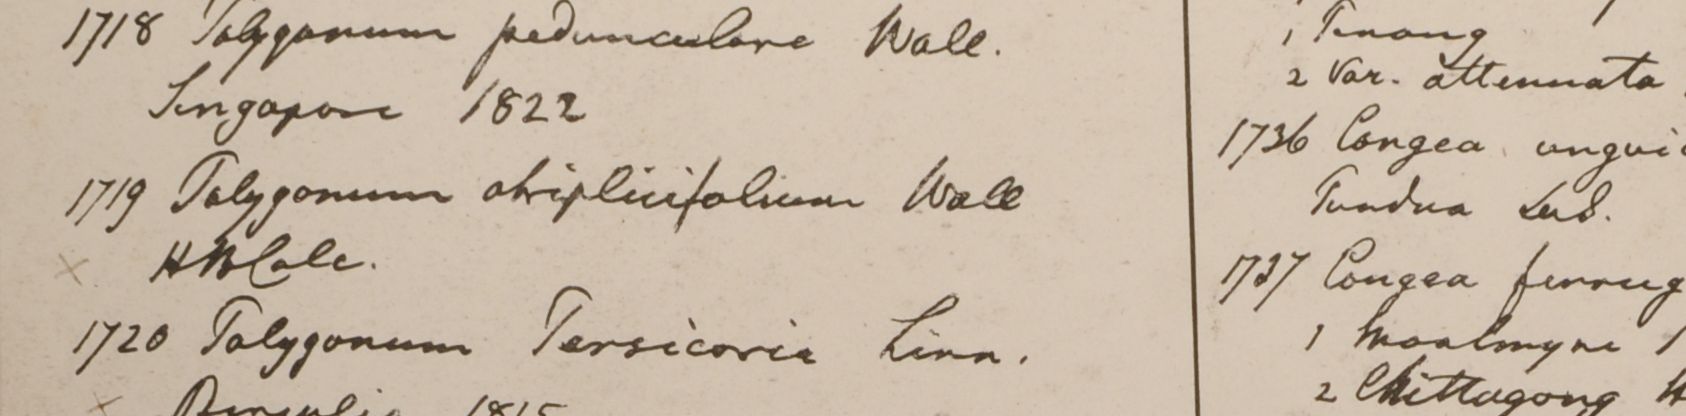 1718 Polygonum pedunculare Wall.
Singapore 1822
1719 Polygonum atriplicifolium Wall
H B Calc.
1720 Polygonum Persicaria Linn.
1815
1 Penang
2 Var. attenuata
1736 Congea ungui
Tundua Lud.
1737 Congea ferrug
1 Moalmyne 1
2 Chittagong H